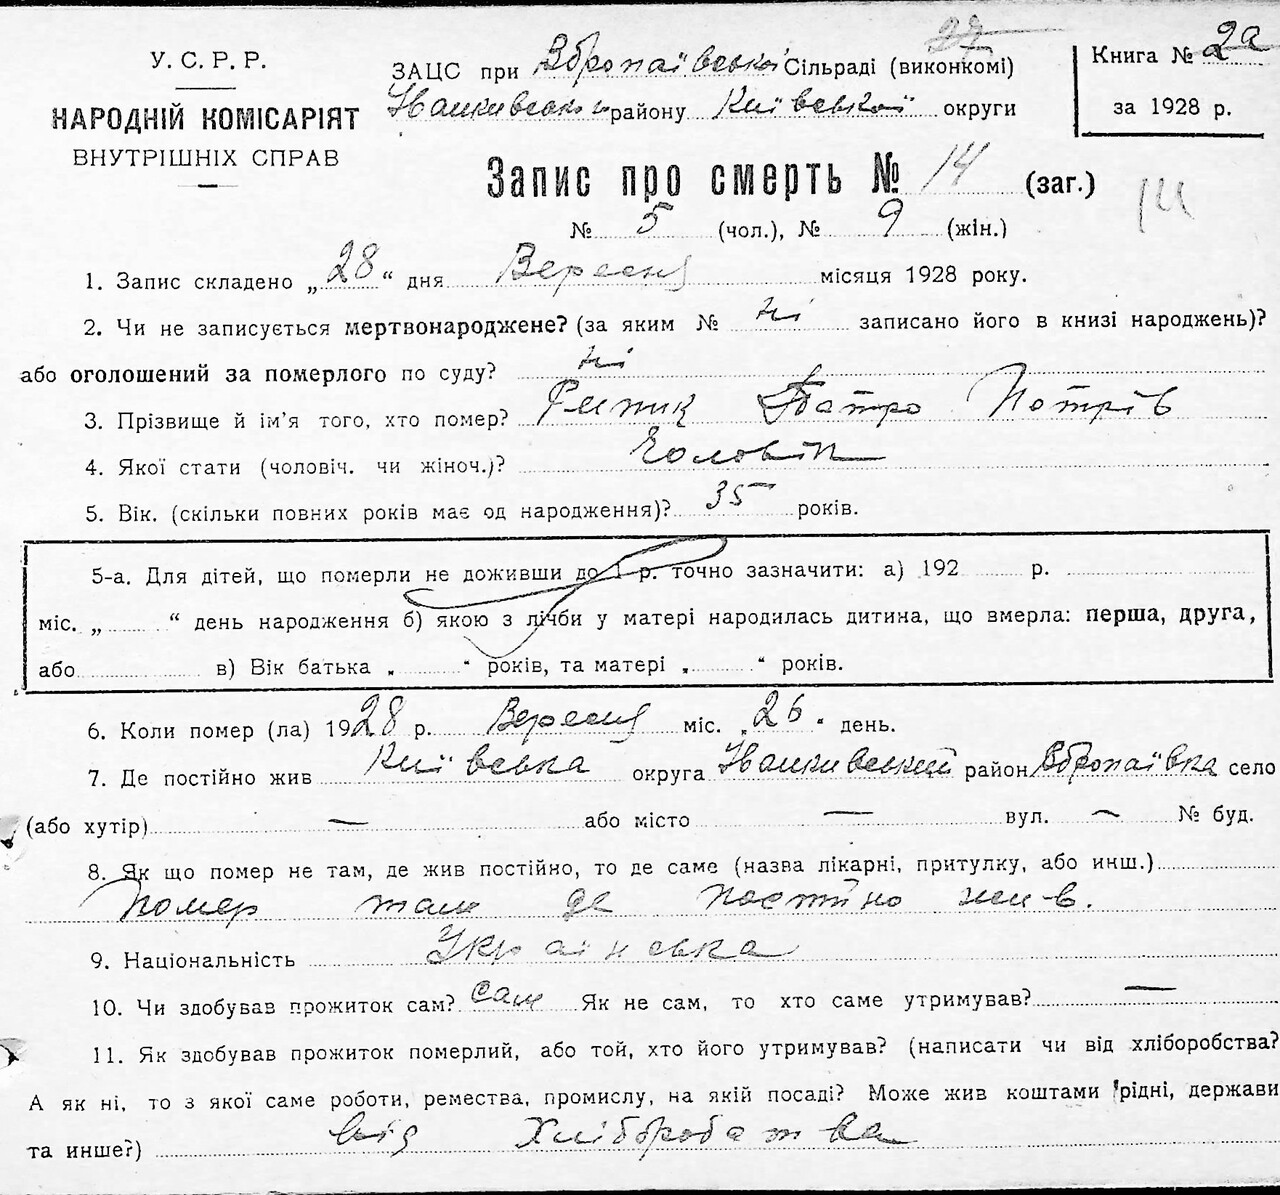 У. С. Р. Р.
НАРОДНІЙ КОМІСАРІЯТ
ВНУТРІШНІХ СПРАВ
27
ЗАЦС при Вбропаївської Сільраді (виконкомі)
Іванківського району Київської округи
Книга № 2а
за 1928 р.
Запис про смерть № 14 (заг.)
14
№ 5 (чол.), № 9 (жін.)
1. Запис складено „28“ дня Вересня місяця 1928 року.
2. Чи не записується мертвонароджене? (за яким № ні записано його в книзі народжень)?
або оголошений за померлого по суду? ні
3. Прізвище й ім'я того, хто помер? Петрів
4. Якої стати (чоловіч. чи жіноч.)? Чоловік
5. Вік. (скільки повних років має од народження)? 35 років.
5-а. Для дітей, що померли не доживши до 1 р. точно зазначити: а) 192 р.
міс. „ “ день народження б) якою з лічби у матері народилась дитина, що вмерла: перша, друга,
або в) Вік батька „ “ років, та матері „ “ років.
6. Коли помер (ла) 1928 р. Вересня міс. „26“ день.
7. Де постійно жив Київська округа Іванківський район Вбропаївка село
(або хутір) — або місто — вул. — № буд.
8. Як що помер не там, де жив постійно, то де саме (назва лікарні, притулку, або инш.)
Помер там де постійно жив.
9. Національність Українська
10. Чи здобував прожиток сам? сам Як не сам, то хто саме утримував? —
11. Як здобував прожиток померлий, або той, хто його утримував? (написати чи від хліборобства?
А як ні, то з якої саме роботи, ремества, промислу, на якій посаді? Може жив коштами рідні, держави
та инше?) від Хліборобства